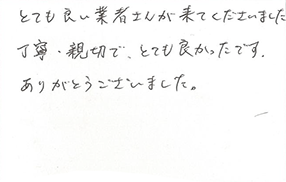 とても良い業者さんが来てくださいました
丁寧・親切で、とても良かったです.
ありがとうございました。